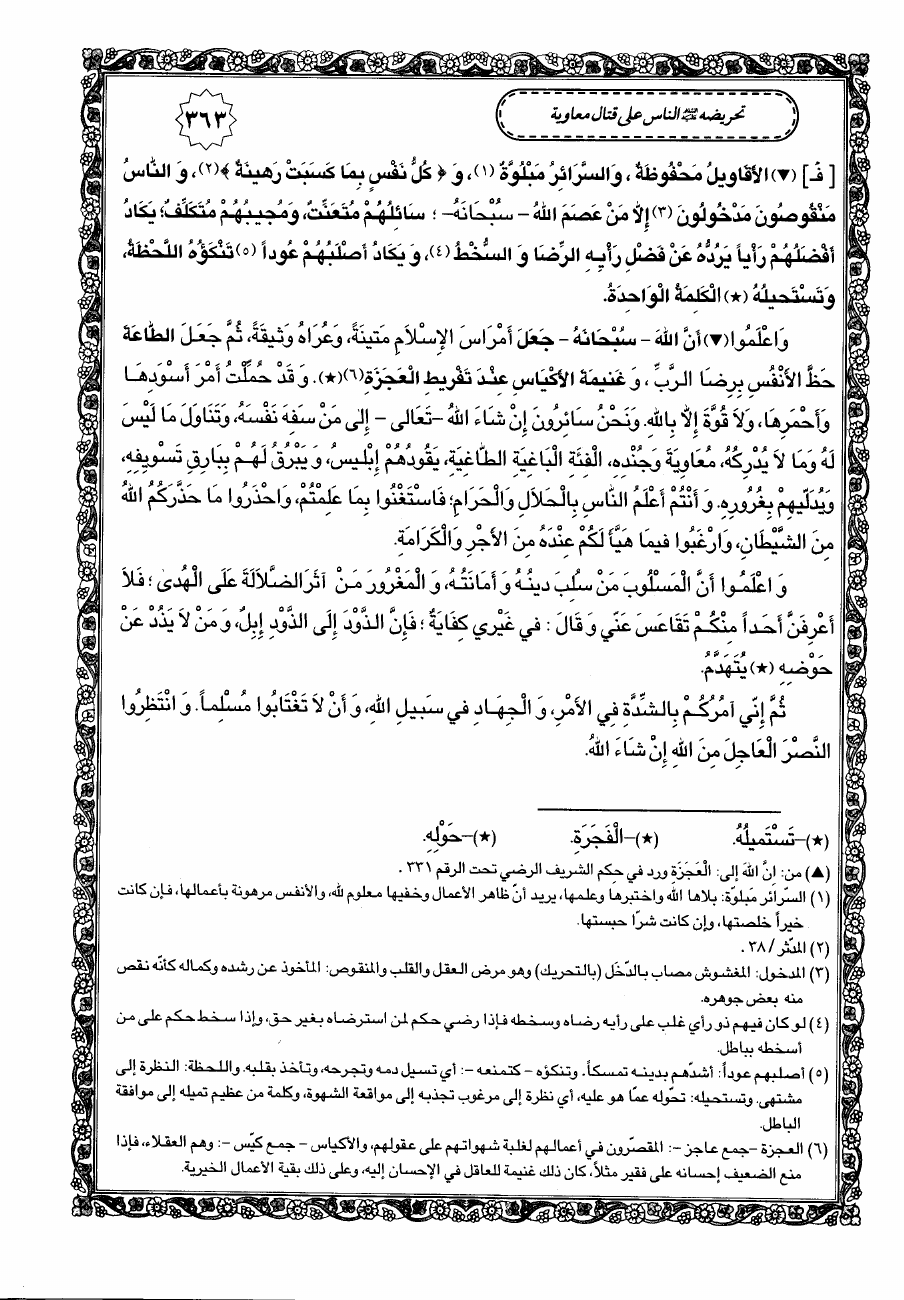 تحريضه عليه السلام الناس على قتال معاوية
٣٦٣
[ فَـ ] (▼) الأَقَاوِيلُ مَحْفُوظَةٌ ، وَالسَّرَائِرُ مَبْلُوَّةٌ (١) ، وَ ﴿ كُلُّ نَفْسٍ بِمَا كَسَبَتْ رَهينَةٌ ﴾(٢)، وَ النَّاسُ
مَنْقُوصُونَ مَدْخُولُونَ (٣) إِلاَّ مَنْ عَصَمَ اللهُ – سُبْحَانَهُ– ؛ سَائِلُهُمْ مُتَعَنِّتٌ، وَمُجيبُهُمْ مُتَكَلِّفٌ؛ يَكَادُ
أَفْضَلُهُمْ رَأْياً يَرُدُّهُ عَنْ فَضْلِ رَأْيِهِ الرِّضَا وَ السُّخْطُ (٤)، وَ يَكَادُ أَصْلَبُهُمْ عُوداً (٥) تَنْكَؤُهُ اللَّحْظَةُ،
وَتَسْتَحيلُهُ (★) الْكَلِمَةُ الْوَاحِدَةُ.
وَاعْلَمُوا(▼) أَنَّ اللهَ – سُبْحَانَهُ – جَعَلَ أَمْرَاسَ الإِسْلاَمِ مَتينَةً، وَعُرَاهُ وَثيقَةً، ثُمَّ جَعَلَ الطَّاعَةَ
حَظَّ الأَنْفُسِ بِرِضَا الرَّبِّ ، وَ غَنيمَةَ الأَكْيَاسِ عِنْدَ تَفْريطِ الْعَجَزَةِ(٦)(★). وَ قَدْ حُمِّلْتُ أَمْرَ أَسْوَدِهَا
وَأَحْمَرِهَا، وَلاَ قُوَّةَ إِلاَّ بِاللهِ. وَنَحْنُ سَائِرُونَ إِنْ شَاءَ اللهُ –تَعَالى – إِلى مَنْ سَفِهَ نَفْسَهُ، وَتَنَاوَلَ مَا لَيْسَ
لَهُ وَمَا لاَ يُدْرِكُهُ، مُعَاوِيَةَ وَجُنْدِهِ، الْفِئَةِ الْبَاغِيَةِ الطَّاغِيَةِ، يَقُودُهُمْ إِبْليسُ، وَ يَبْرُقُ لَهُمْ بِبَارِقِ تَسْويفِهِ،
وَيُدَلّيهِمْ بِغُرُورِهِ. وَ أَنْتُمْ أَعْلَمُ النَّاسِ بِالْحَلاَلِ وَالْحَرَامِ؛ فَاسْتَغْنُوا بِمَا عَلِمْتُمْ، وَاحْذَرُوا مَا حَذَّرَكُمُ اللهُ
مِنَ الشَّيْطَانِ، وَارْغَبُوا فيمَا هَيَّأَ لَكُمْ عِنْدَهُ مِنَ الأَجْرِ وَالْكَرَامَةِ.
وَ اعْلَمُوا أَنَّ الْمَسْلُوبَ مَنْ سُلِبَ دينُهُ وَ أَمَانَتُهُ، وَ الْمَغْرُورَ مَنْ آثَرَ الضَّلاَلَةَ عَلَى الْهُدى ؛ فَلاَ
أَعْرِفَنَّ أَحَداً مِنْكُمْ تَقَاعَسَ عَنّي وَ قَالَ : في غَيْري كِفَايَةٌ ؛ فَإِنَّ الذَّوْدَ إِلَى الذَّوْدِ إِبِلٌ، وَ مَنْ لاَ يَذُدْ عَنْ
حَوْضِهِ (★) يُتَهَدَّمُ.
ثُمَّ إِنّي آمُرُكُمْ بِالشِّدَّةِ فِي الأَمْرِ، وَ الْجِهَادِ في سَبيلِ اللهِ، وَ أَنْ لاَ تَغْتَابُوا مُسْلِماً. وَ انْتَظِرُوا
النَّصْرَ الْعَاجِلَ مِنَ اللهِ إِنْ شَاءَ اللهُ.
(★)–تَسْتَميلُهُ. (★)–الْفَجَرَةِ. (★)–حَوْلِهِ.
(▲) من: انَّ اللهَ إلى: الْعَجَزَةِ ورد في حكم الشريف الرضي تحت الرقم ٣٣١ .
(١) السّرائر مَبلوّة: بلاها الله واختبرها وعلمها، يريد أنّ ظاهر الأعمال وخفيها معلوم لله، والأنفس مرهونة بأعمالها، فإن كانت
خيراً خلصتها، وإن كانت شرّا حبستها.
(٢) المدّثر / ٣٨ .
(٣) المدخول: المغشوش مصاب بالدّخَل (بالتحريك) وهو مرض العقل والقلب والمنقوص: المأخوذ عن رشده وكماله كأنّه نقص
منه بعض جوهره.
(٤) لو كان فيهم ذو رأي غلب على رأيه رضاه وسخطه فإذا رضي حكم لمن استرضاه بغير حق، وإذا سخط حكم على من
أسخطه بباطل.
(٥) أصلبهم عوداً: أشدّهم بدينه تمسكاً. وتنكؤه – كتمنعه –: أي تسيل دمه وتجرحه، وتأخذ بقلبه. واللحظة: النظرة إلى
مشتهى. وتستحيله: تحوّله عمّا هو عليه، أي نظرة إلى مرغوب تجذبه إلى مواقعة الشهوة، وكلمة من عظيم تميله إلى موافقة
الباطل.
(٦) العجزة –جمع عاجز –: المقصّرون في أعمالهم لغلبة شهواتهم على عقولهم، والأكياس – جمع كيّس –: وهم العقلاء، فإذا
منع الضعيف إحسانه على فقير مثلاً، كان ذلك غنيمة للعاقل في الإحسان إليه، وعلى ذلك بقية الأعمال الخيرية.